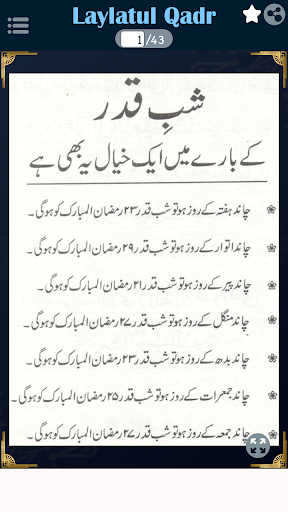 Laylatul Qadr
1 /43
شبِ قدر
کے بارے میں ایک خیال یہ بھی ہے
چاند ہفتہ کے روز ہو تو شب قدر ۲۳ رمضان المبارک کو ہوگی ۔
چاند اتوار کے روز ہو تو شب قدر ۲۹ رمضان المبارک کو ہوگی ۔
چاند پیر کے روز ہو تو شب قدر ۲۱ رمضان المبارک کو ہوگی ۔
چاند منگل کے روز ہو تو شب قدر ۲۷ رمضان المبارک کو ہوگی ۔
چاند بدھ کے روز ہو تو شب قدر ۲۳ رمضان المبارک کو ہوگی ۔
چاند جمعرات کے روز ہو تو شب قدر ۲۵ رمضان المبارک کو ہوگی ۔
چاند جمعہ کے روز ہو تو شب قدر ۲۷ رمضان المبارک کو ہوگی ۔